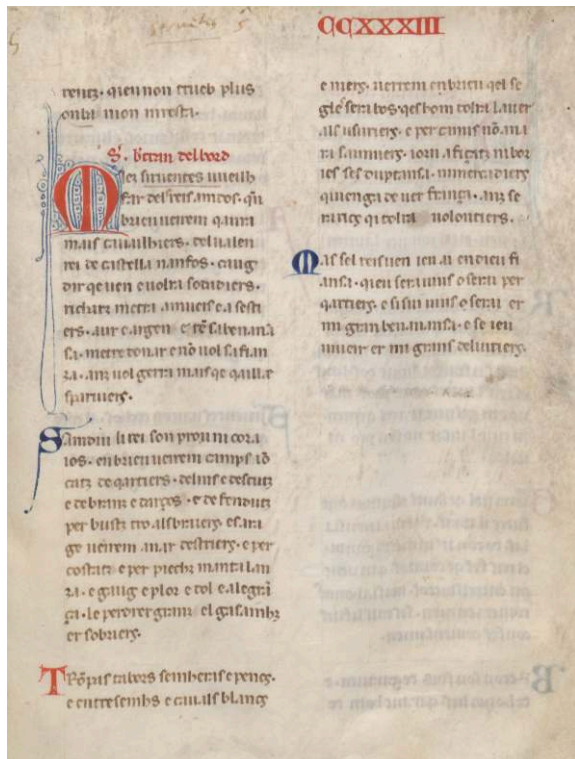 struntes 5
CCXXXIII
rentz. qieu non trueb plus
S'. b'tran delbord
Mei siruentes uueilh
far delsreis amdos. qen
brieu ueirem qaura
mais cauailliers. del ualen
rei de castella nanfos. caug
dir qe uen e uolra soudadiers.
richartz metra amueis e a sesti
ers. aur e argen e tē sabenanā
sa. metre donar e nō uol safian
za. anz uol gerra mais qe qailla
sparuiers.
Samdui li rei son prou ni cora
ios. en brieu ueirem camps iō
catz de qartiers. delms e descutz
e de branz e darços. e de fendutz
per bustz tro als braiers. es ara
ge ueirem anar destriers. e per
costatz e per piechz manta lan
za. e gaug e plor e dol e alegrā
ça. le perdrer granz el gasainhz
er sobriers.
Trōpas tabors seinheras e penos.
e entreseinhs e cauals blancs
e niers. ueirem en brieu qel se
gle sera bos. qes hom tolra lauer
als usuriers. e per camis nō. ani
ra saumiers. iorn afizatz ni bor
ies ses duptansa. ni mercadiers
qui enga de uer frança. anz se
ra rics qi tolra uolontiers.
Mas sel reis uen ieu ai en dieu fi
ansa. qieu serai uius o serai per
qartiers. e si sui uius o serai er
mi gran benanansa. e se ieu
mueir er mi grans deliuriers.